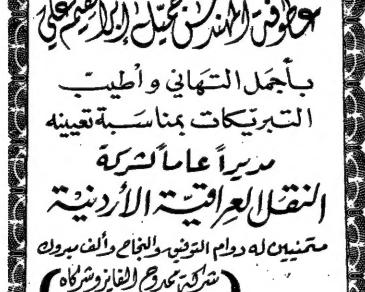 عطوفة المهندس جميل إبراهيم علي
بأجمل التهاني وأطيب
التبريكات بمناسبة تعيينه
مديراً عاماً لشركة
النقل العراقية الأردنية
متمنين له دوام التوفيق والنجاح وألف مبروك
( شركة ممدوح الفايز وشركاه )